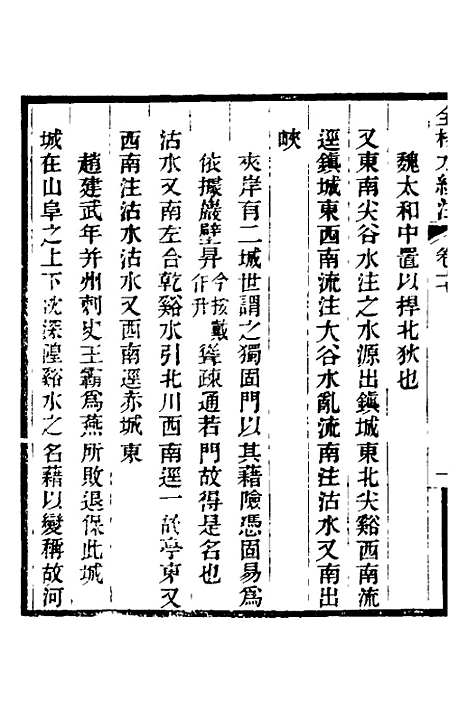 全校水經注 卷十
魏太和中置以捍北狄也
又東南尖谷水注之水源出鎮城東北尖谿西南流
逕鎮城東西南流注大谷水亂流南注沽水又南出
峽
夾岸有二城世謂之獨固門以其藉險憑固易為
依據巖壁昇今按戴作升聳疎通若門故得是名也
沽水又南左合乾谿水引北川西南逕一故亭東又
西南注沽水沽水又西南逕赤城東
趙建武年并州刺史王霸為燕所敗退保此城
城在山阜之上下枕深隍谿水之名藉以變稱故河